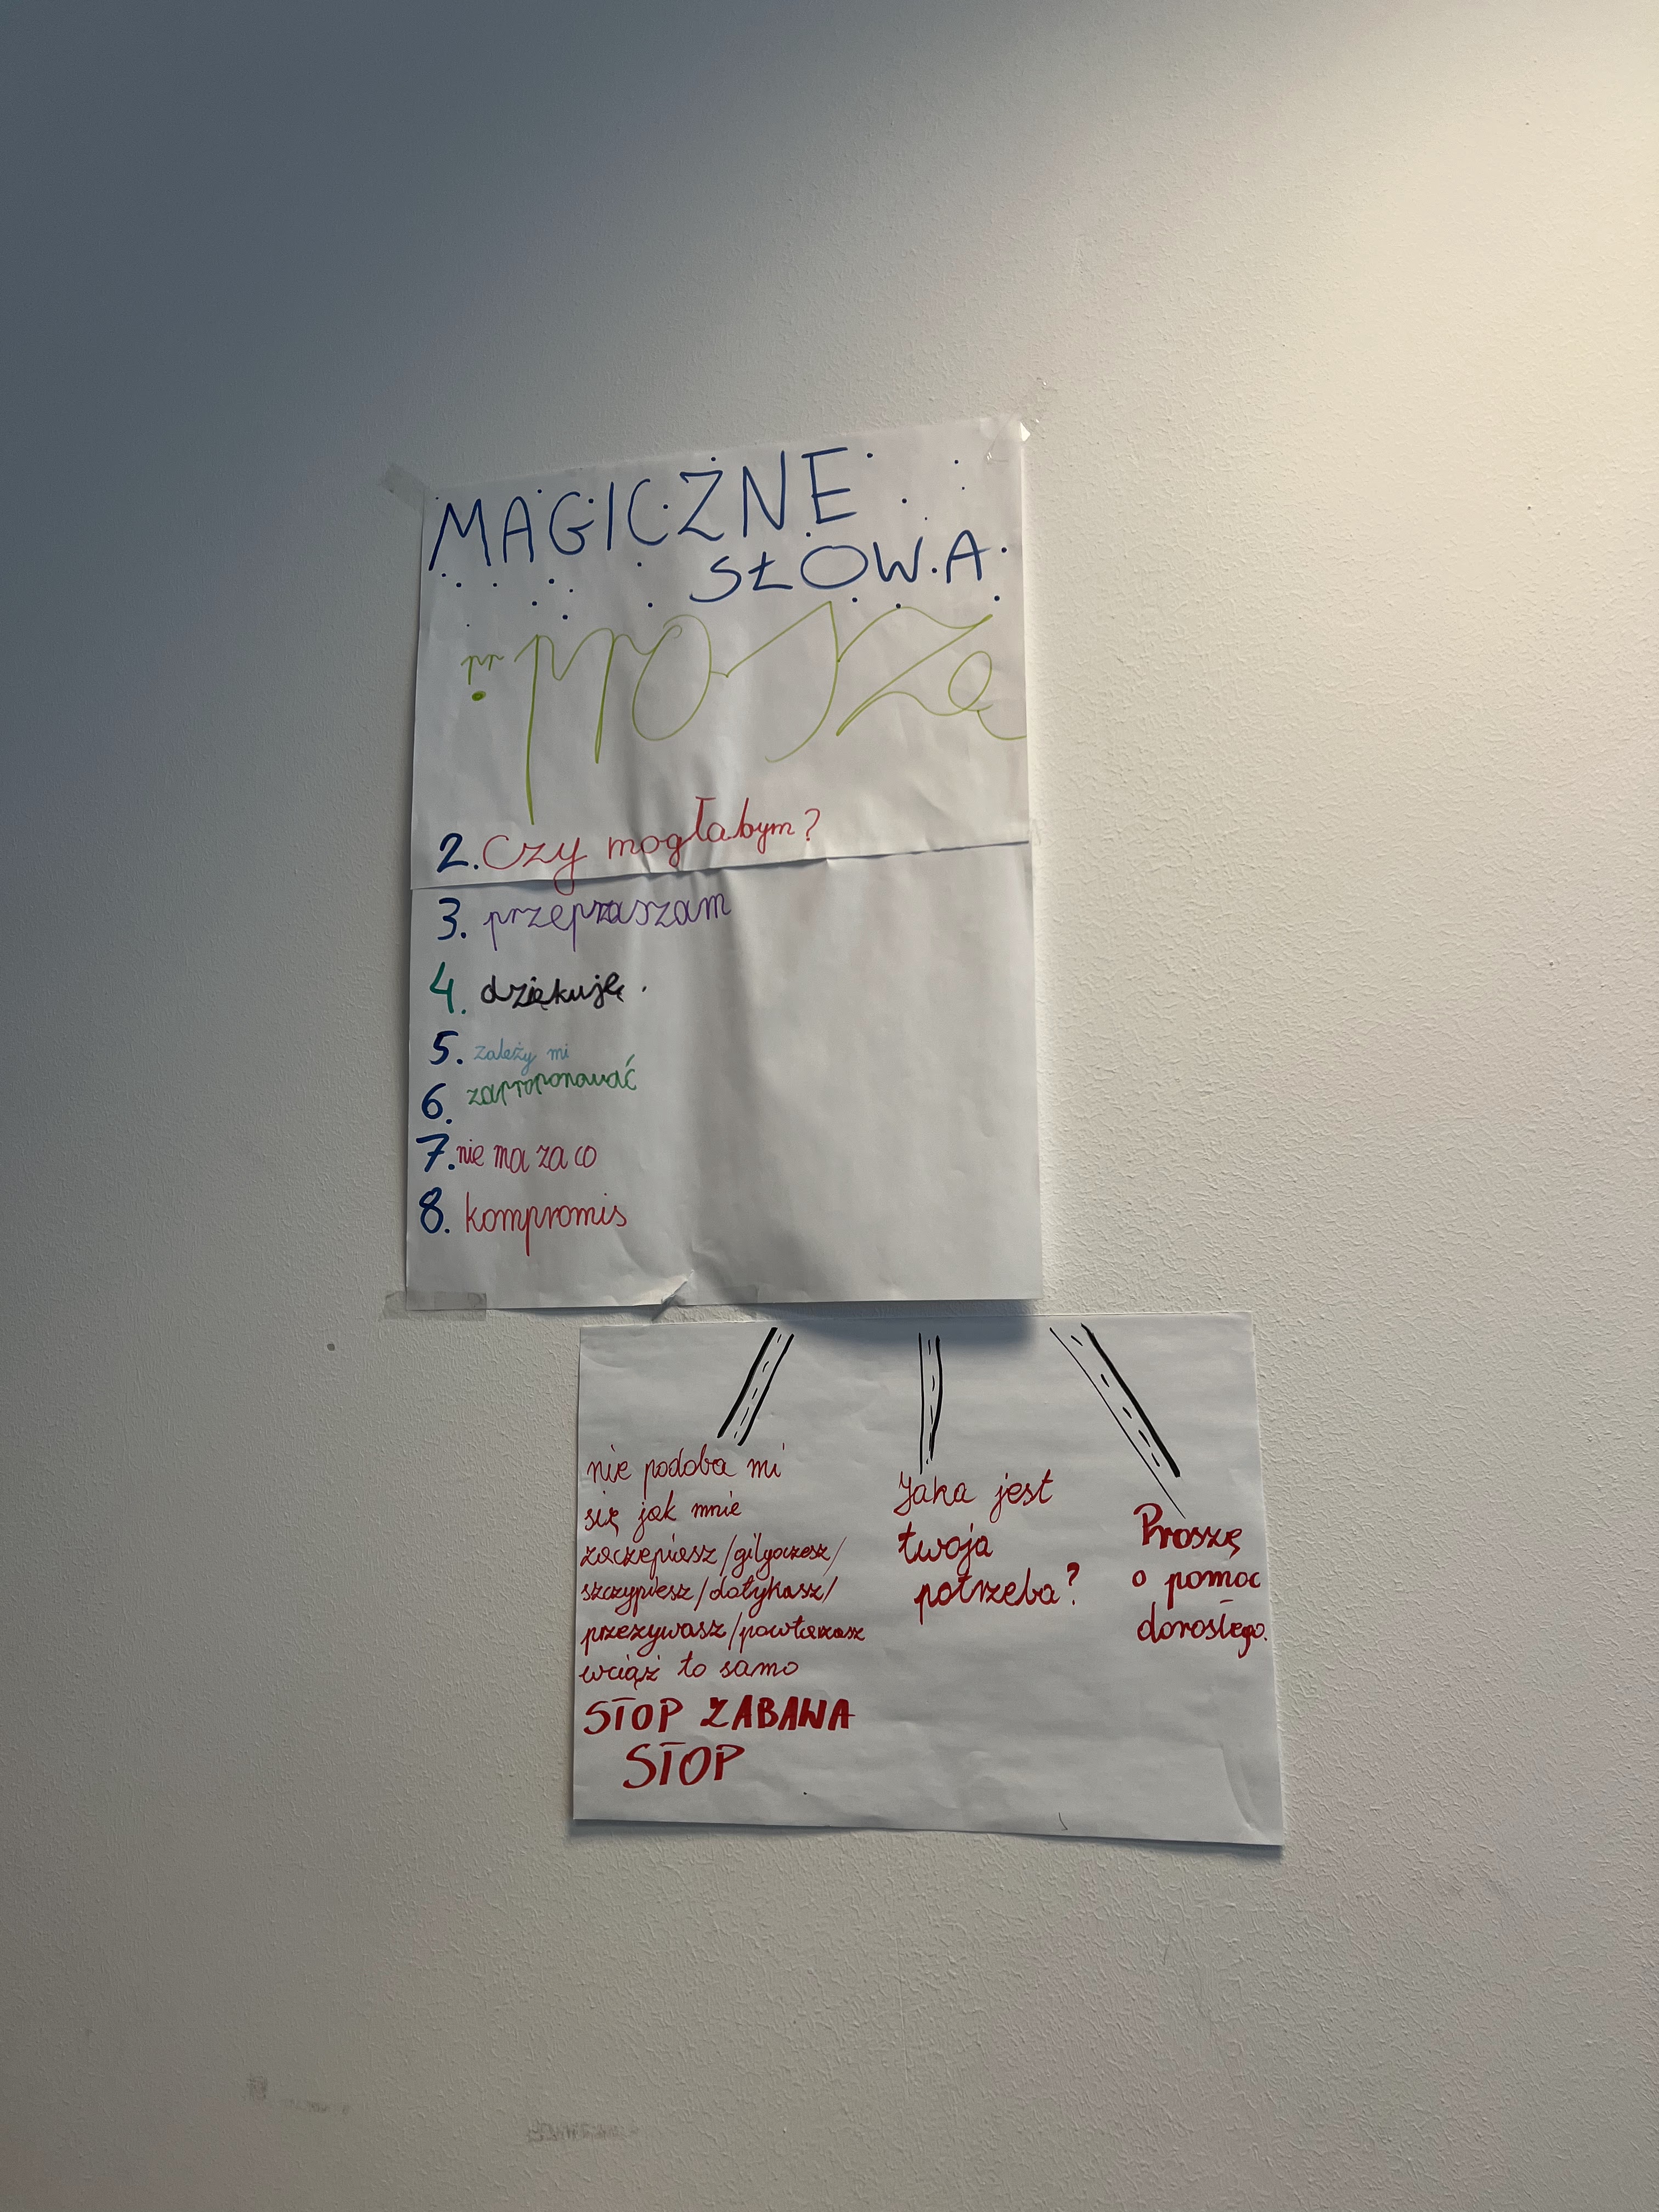 MAGICZNE
SŁOWA
pr proszę
2. Czy mogłabym?
3. przepraszam
4. dziękuję.
5. zależy mi
6. zaproponować
7. nie ma za co
8. kompromis
nie podoba mi
się jak mnie
zaczepiasz/gilgoczesz/
szczypiesz/dotykasz/
przezywasz/powtarzasz
wciąż to samo
STOP ZABAWA
STOP
Jaka jest
twoja
potrzeba?
Proszę
o pomoc
dorosłego.